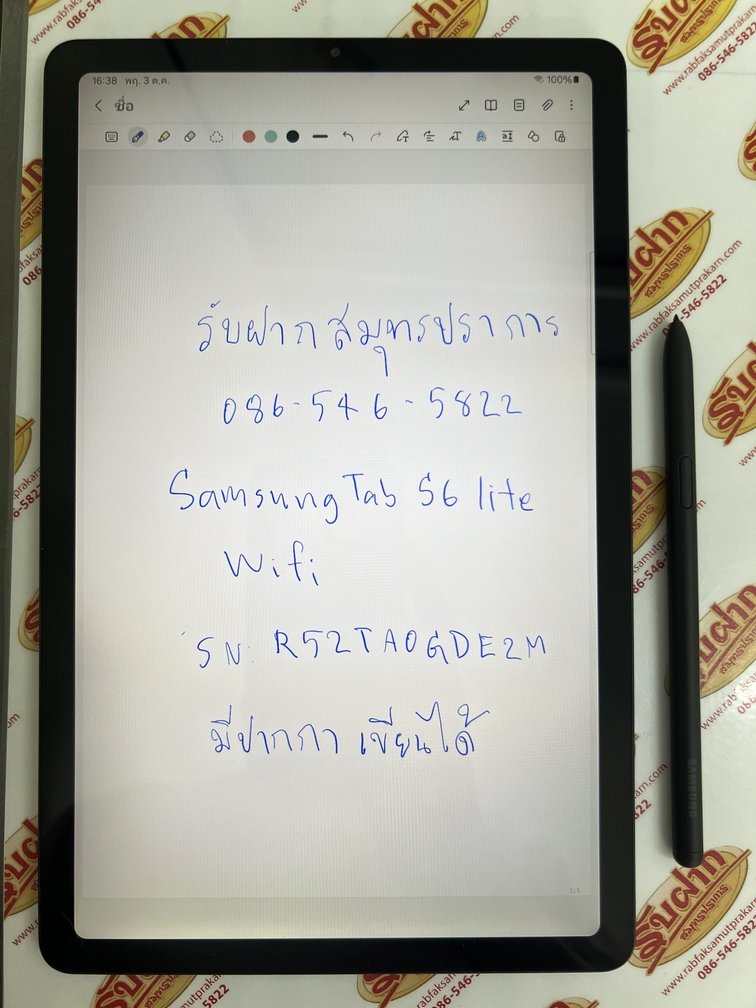 16:38 พฤ. 3 ต.ค. 100%
ชื่อ
รับฝากสมุทรปราการ
086-546-5822
Samsung Tab S6 lite
Wifi
SN: R52TA0GDE2M
มีปากกา เขียนได้
1/1
SAMSUNG
รับฝาก
สมุทรปราการ
www.rabfaksamutprakarn.com
086-546-5822